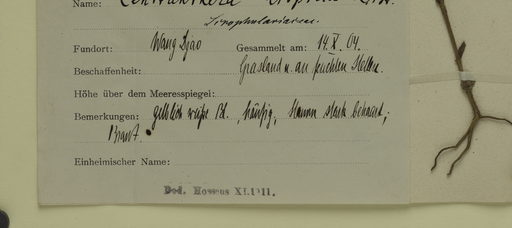 Name: Centranthera
Scrophulariaceae.
Fundort: Wang Djao Gesammelt am: 14.X.04.
Beschaffenheit: Grasland u. an feuchten Stellen.
Höhe über dem Meeresspiegel:
Bemerkungen: gelblich weiße Bl., häufig, Stamm stark behaart;
Einheimischer Name:
Ded. Hosseus XI.1911.